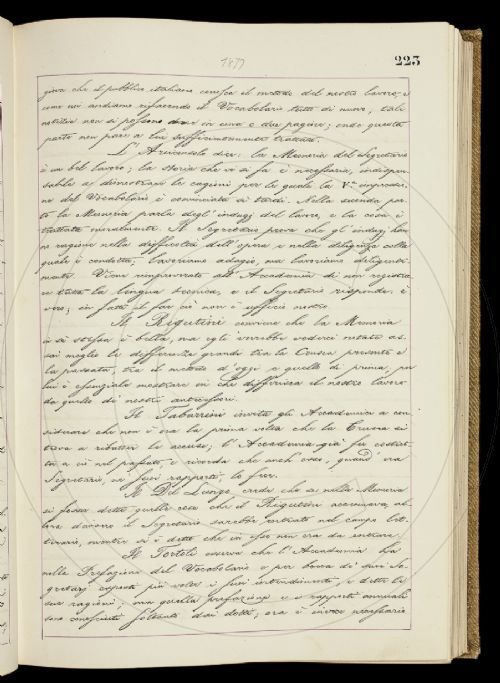 1877
223
giova che il pubblico italiano conosca il metodo del nostro lavoro, e
come noi andiamo rifacendo il Vocabolario tutto di nuovo; tali
notizie non si possono dare in una o due pagine; onde questa
parte non pare a lui sufficientemente trattata.
L'Arciconsolo dice: la Memoria del Segretario
è un bel lavoro; la storia che vi si fa è necessaria, indispen-
sabile a dimostrare le cagioni per le quali la Vª impressio-
ne del Vocabolario è cominciata sì tardi. Nella seconda par-
te la Memoria parla degl'indugi del lavoro, e la cosa è
trattata moralmente. Il Segretario prova che gl'indugi han-
no ragione nella difficoltà dell'opera e nella diligenza colla
quale è condotta; lavoriamo adagio, ma lavoriamo diligente-
mente. Viene rimproverato all'Accademia di non registra-
re tutta la lingua tecnica, e il Segretario risponde: è
vero; in fatti il far ciò non è ufficio nostro.
Il Rigutini conviene che la Memoria
in sè stessa è bella, ma egli vorrebbe vederci notate as-
sai meglio le differenze grandi tra la Crusca presente e
la passata, tra il metodo d'oggi e quello di prima; per
lui è essenziale mostrare in che differisca il nostro lavoro
da quello de' nostri antecessori.
Il Tabarrini invita gli Accademici a con-
siderare che non è ora la prima volta che la Crusca si
trova a ributtar le accuse; l'Accademia già fu costret-
ta a ciò nel passato, e ricorda che anch'esso, quand'era
Segretario, ne' suoi rapporti, lo fece.
Il Del Lungo crede che se nella Memoria
si fosser dette quelle cose che il Rigutini accennava, al-
lora davvero il Segretario sarebbe entrato nel campo let-
terario, mentre si è detto che in esso non era da entrare.
Il Tortoli osserva che l'Accademia ha
nella Prefazione del Vocabolario e per bocca di' suoi Se-
gretarj esposti più volte i suoi intendimenti e dette le
sue ragioni; ma quella prefazione e i rapporti annuali
sono conosciuti soltanto dai dotti; ora è invece necessario